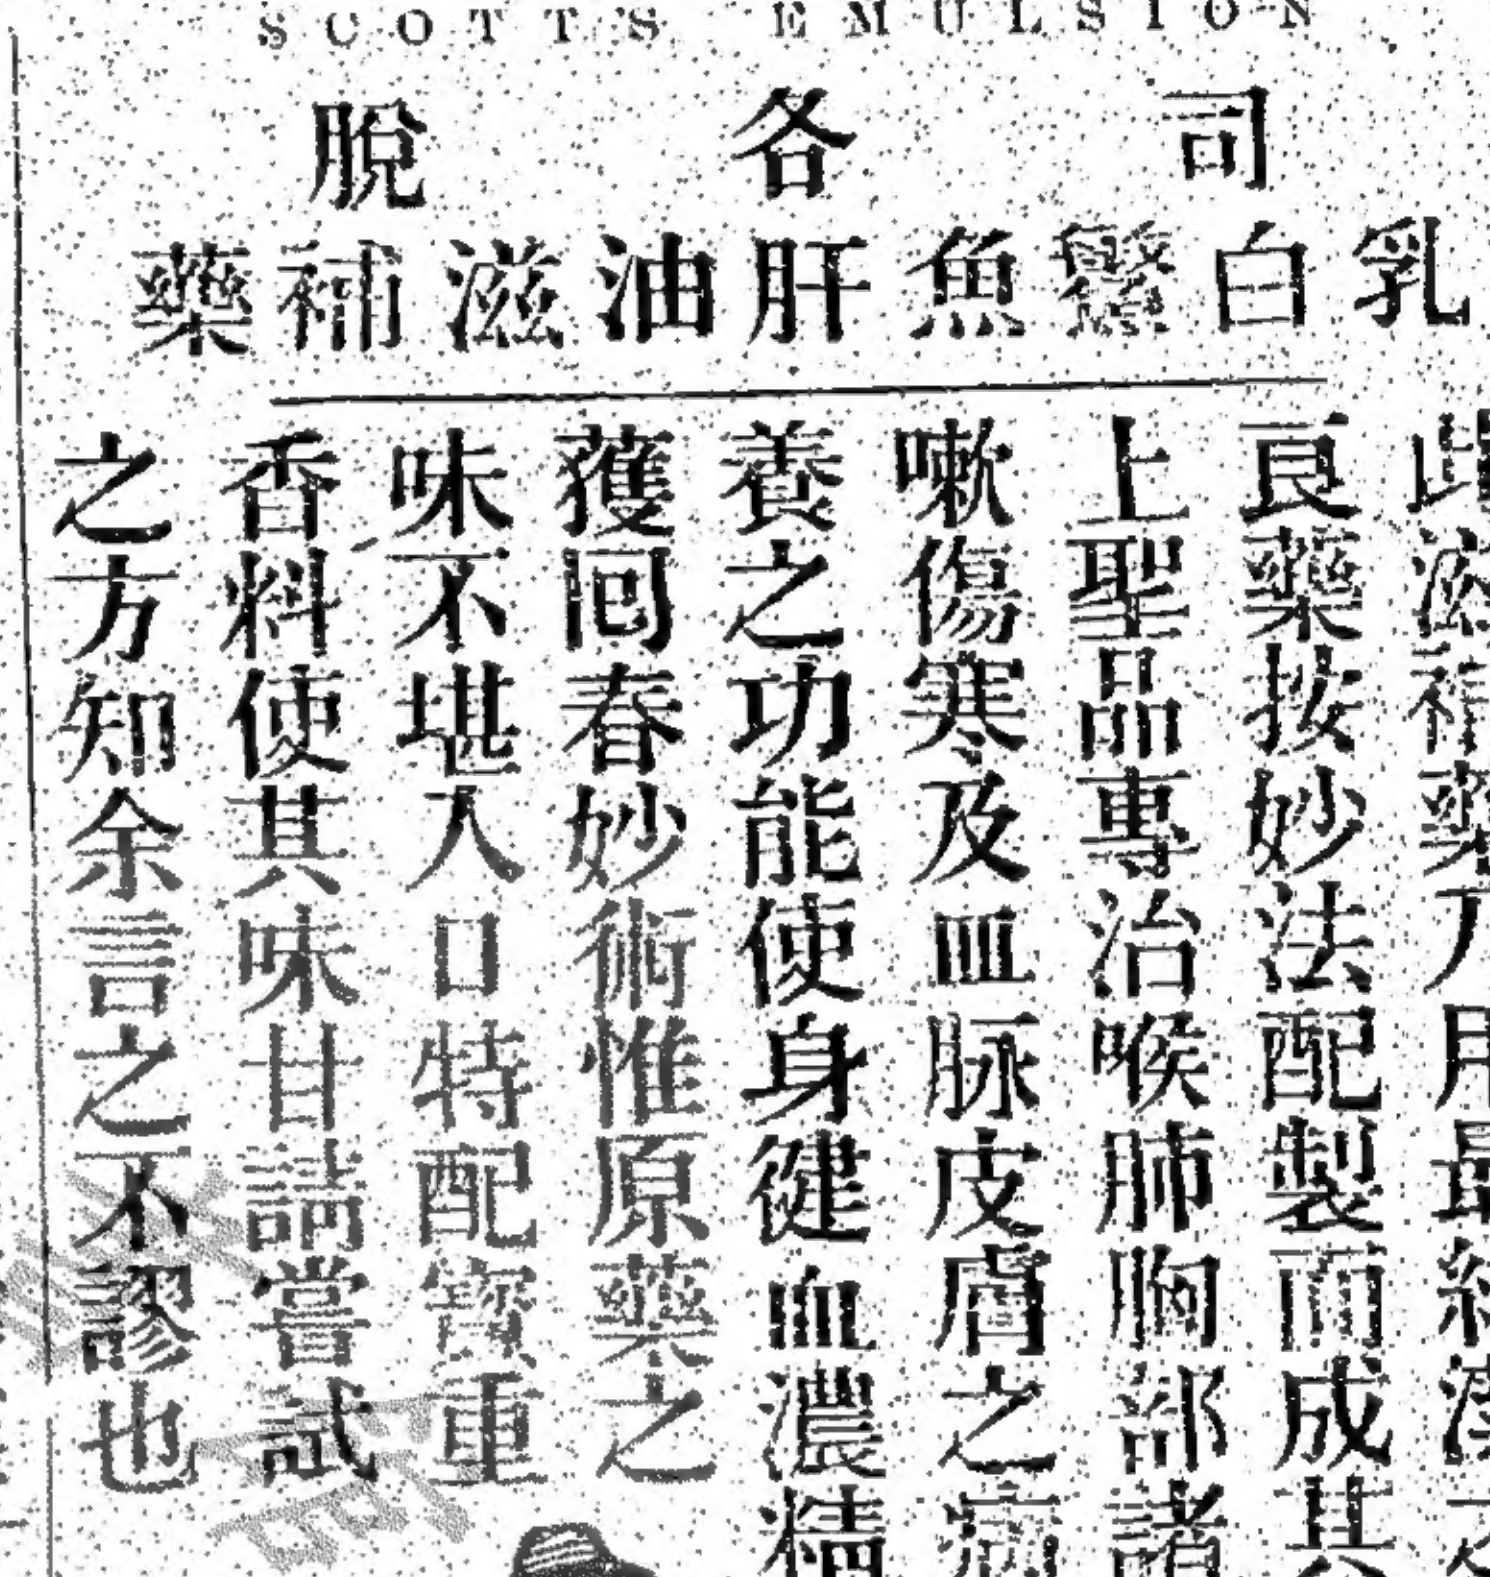 SCOTT'S EMULSION
司各脫
乳白鰵魚肝油滋補藥
此滋補藥乃用最
良藥按妙法配製而成其
上聖品專治喉肺胸部諸
嗽傷寒及血脉皮膚之病
養之功能使身健血濃精
獲囘春妙術惟原藥之
味不堪人口特配寳重
香料使其味甘請嘗試
之方知余言之不謬也